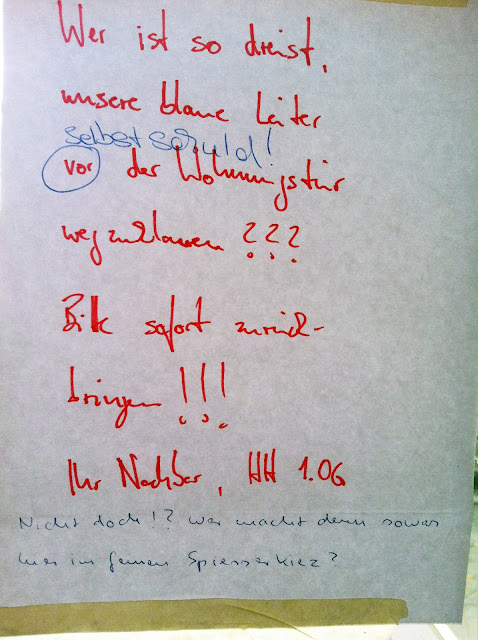 Wer ist so dreist,
unsere blaue Leiter
selbst schuld!
vor der Wohnungstür
wegzuklauen ???
Bitte sofort zurück-
bringen !!!
Ihr Nachbar, HH 1.OG
Nicht doch!? Wer macht denn sowas
hier im feinen Spiesserkiez?